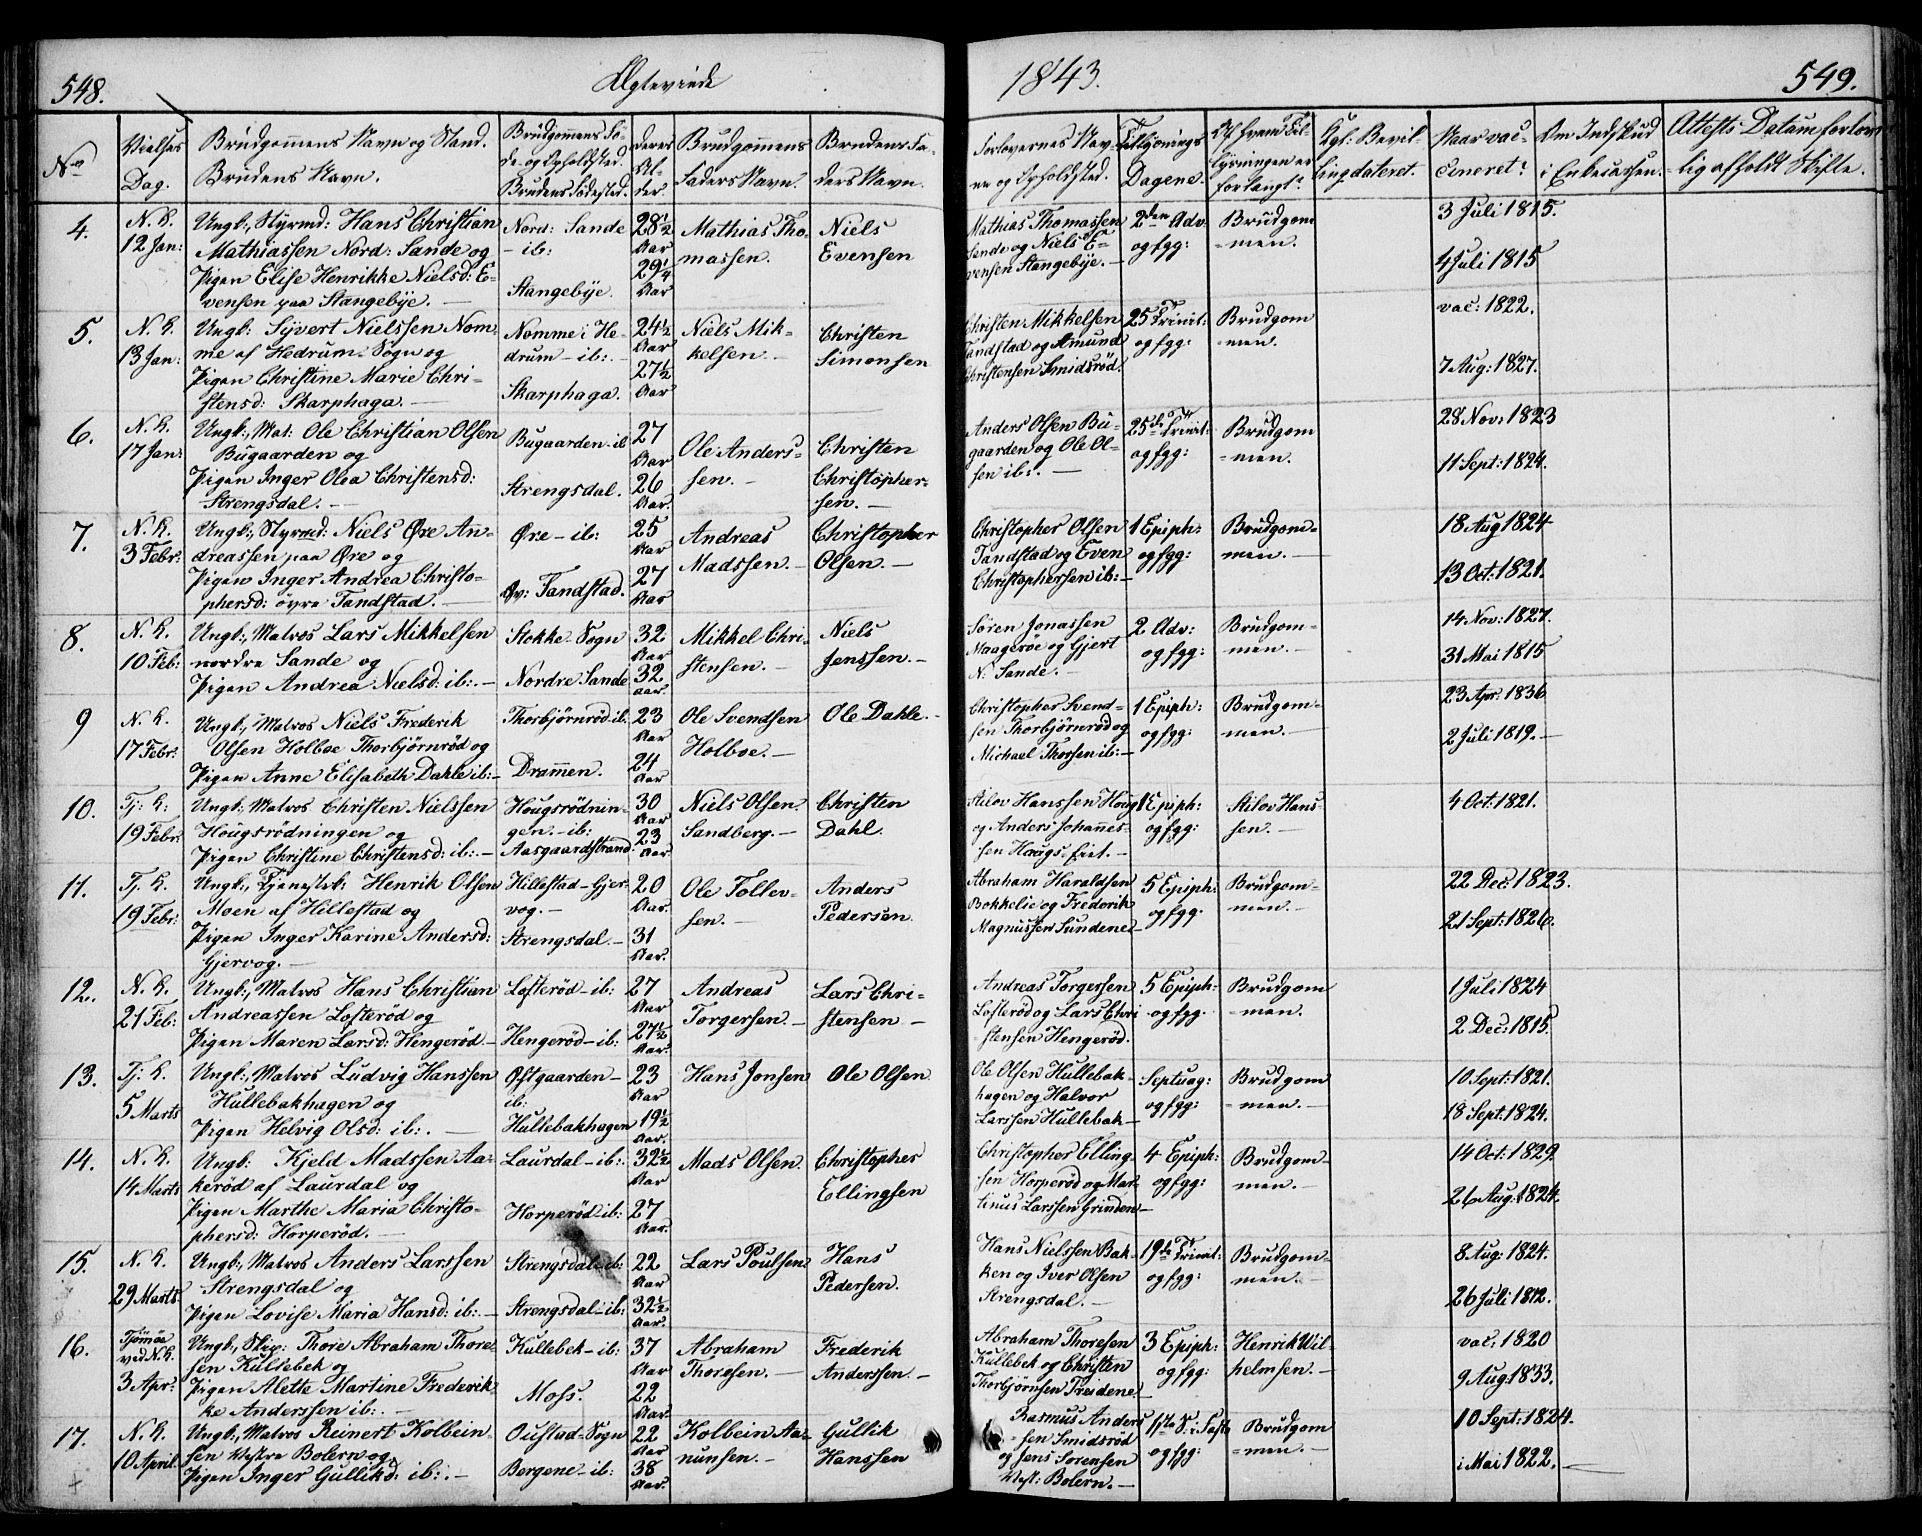 548.
Ægteviede
1843.
549.
No
Vielses Dag.
Brudgom̅ens Navn og Stand.
Brudens Navn.
Brudgomens Fø-
de- og Opholdsted.
Brudens Fødested.
deres
Al-
der.
Brudgom̅ens
Faders Navn.
Brudens Fa-
ders Navn.
Forlovernes Nav-
ne og Opholdsted.
Tillysnings
Dagene.
Af hvem Til-
lysningen er
forlangt.
Kgl: Bevil-
ling dateret.
Naar vac-
cineret.
Om Indskud
i Enkecassen.
Attests Datum for lov-
lig afholdt Skifte.
4.
N. K.
12 Jan:
Ungk:, Styrmd: Hans Christian
Mathiassen Nord: Sande og
Pigen Elise Henrikke Nielsd: E-
vensen paa Stangebye. —
Nord: Sande
– ib:
Stangebye.
28½
Aar
29¼
Aar
Mathias Tho-
massen.
Niels
Evensen
Mathias Thomassen
Sande og Niels E-
vensen Stangebye. —
2den Adv:
og fgg:
Brudgom
-men.
3 Juli 1815.
4 Juli 1815
5.
N. K.
13 Jan:
Ungk: Syvert Nielssen Nom-
me af Hedrum Sogn og
Pigen Christine Marie Chri-
stensd: Skarphaga. —
Nomme i He-
drum – ib: –
Skarphaga.
24½
Aar
27½
Aar
Niels Mik-
kelsen. –
Christen
Simonsen
Christen Mikkelsen
Tandstad og Amund
Christensen Smidsrød.
25 Trinit:
og fgg:
Brudgom
-men.
vac: 1822.
7 Aug: 1827.
6.
N. K.
17 Jan:
Ungk:, Mat: Ole Christian Olsen
Bugaarden og
Pigen Inger Olea Christensd:
Strengsdal. —
Bugaarden – ib
Strengsdal.
27
Aar
26
Aar.
Ole Anders-
sen. –
Christen
Christopher-
sen. –
Anders Olsen Bu-
gaarden og Ole Ol-
sen ib: —
25de Trinit:
og fgg:
Brudgom
-men.
28 Nov: 1823
11 Sept: 1824.
7.
N. K.
3 Febr:
Ungk:, Styrmd: Niels Øre An-
dreassen paa Øre og
Pigen Inger Andrea Christo-
phersd: øvre Tandstad. —
Øre – ib:
Øv: Tandstad.
25
Aar
27
Aar
Andreas
Madssen. –
Christopher
Olsen. –
Christopher Olsen
Tandstad og Even
Christophersen ib: –
1 Epiph:
og fgg:
Brudgom-
men. –
18 Aug 1824
13 Oct: 1821.
8.
N. K.
10 Feb:
Ungk:, Matros Lars Mikkelsen
nordre Sande og
Pigen Andrea Nielsd: ib: –
Stokke Sogn
Nordre Sande
32
Aar
32
aar.
Mikkel Chri-
stensen. –
Niels
Jenssen. –
Søren Jonassen
Maagerøe og Gjert
N: Sande. –
2 Adv:
og fgg:
Brudgom-
men. –
14 Nov: 1827.
31 Mai 1815
9
N. K.
17 Febr:
Ungk:, Matros Niels Frederik
Olsen Holboe Thorbjørnrød og
Pigen Anne Elisabeth Dahle ib: –
Thorbjørnrød ib:
Dram̅en.
23
Aar
24
Aar
Ole Svendsen
Holboe. –
Ole Dahle. –
Christopher Svend-
sen Thorbjørnrød og
Michael Thorsen ib: –
1 Epiph:
og fgg:
Brudgom-
men. –
23 Apr. 1836
2 Juli 1819. –
10.
Tj: K:
19 Febr:
Ungk:, Matros Christen Nielssen
Hougsrødningen og
Pigen Christine Christensd: ib: –
Hougsrødnin-
gen. – ib:
Aasgaardstrand.
30
Aar
23
Aar.
Niels Olsen
Sandberg. –
Christen
Dahl.
Stilov Hanssen Houg
og Anders Johannes-
sen Hougs-Eiet. –
1 Epiph:
og fgg:
Stilov Hans-
sen. –
4 Oct: 1821.
11.
Tj. K.
19 Febr:
Ungk:, Tjenestek: Henrik Olsen
Moen af Hillestad og
Pigen Inger Karine Andersd:
Gjervog. –
Hillestad – Gjer-
vog. –
Strengsdal. –
20
Aar.
31
Aar.
Ole Tollev-
sen. –
Anders
Pedersen
Abraham Haraldsen
Bokkelie og Frederik
Magnussen Sundene –
5 Epiph:
og fgg.
Brudgom-
men. –
22 Dec: 1823.
21 Sept: 1826.
12.
N. K.
21 Feb:
Ungk:, Matros Hans Christian
Andreassen Lofterød og
Pigen Maren Larsd: Hengerød –
Lofterød – ib:
Hengerød – ib:
27
Aar
27½
Aar.
Andreas
Torgersen. –
Lars Chri-
stensen –
Andreas Torgersen
Lofterød og Lars Chri
-stensen Hengerød.
5 Epiph:
og fgg.
Brudgom
-men.
1 Juli 1824
2 Dec: 1815.
13.
Tj. K.
5 Marts
Ungk:, Matros Ludvig Hanssen
Hullebakhagen og
Pigen Helvig Olsd: ib:. —
Østgaarden –
ib:
Hullebakhagen
23
Aar
19½
Aar.
Hans Jonsen
Ole Olsen
Ole Olsen Hullebak-
hagen og Halvor
Larssen Hullebak –
Septuag:
og fgg:
Brudgom
-men. –
10 Sept: 1821.
18 Sept: 1824.
14.
N. K.
14 Marts
Ungk: Kjeld Madssen Aa-
kerød af Laurdal og
Pigen Marthe Maria Christo-
phersd: Horperød. –
Laurdal – ib:
Horperød – ib:
32½
Aar
27
Aar.
Mads Olsen.
Christopher
Ellingsen
Christopher Elling-
sen Horperød og Mar-
tinus Larssen Grinden –
4 Epiph:
og fgg:
Brudgom-
men. –
14 Oct: 1829
26 Aug: 1824.
15.
N. K.
29 Marts
Ungk:, Matros Anders Larssen
Strengsdal og
Pigen Lovise Maria Hansd: ib: –
Strengsdal – ib:
Strengsdal – ib:
22
Aar
32½
Aar.
Lars Poulsen
Hans
Pedersen.
Hans Nielssen Bak-
ken og Iver Olsen
Strengsdal. –
19de Trinit:
og fgg:
Brudgom-
men. –
8 Aug: 1824.
26 Juli 1812.
16.
Tjømøe
ved N. K.
3 Apr:
Ungk:, Skip: Thore Abraham Thore-
sen Kullebek og
Pigen Alette Martine Frederik-
ke Anderssen ib: –
Kullebek – ib:
Moss.
37
Aar
22
Aar.
Abraham
Thoresen. –
Frederik
Anderssen. –
Abraham Thoresen
Kullebek og Christen
Thorbjørnsen Treidene –
3 Epiph:
og fgg:
Henrik Wil-
helmsen. –
vac: 1820
9 Aug: 1833.
17.
N. K.
10 April
Ungk:, Matros Reinert Kolbein-
sen Vestre Bolern og
Pigen Inger Gullikd: ib: –
Oustad Sogn
Bergene – ib:
22
Aar
38
Aar.
Kolbein Aa-
nunsen. –
Gullik
Hanssen
Rasmus Anders
-sen Smidsrød
og Jens Sørensen
Vest: Bolern. –
1ste S: i Faste
og fgg:
Brudgom
-men. –
10 Sept: 1824.
i Mai 1822. –